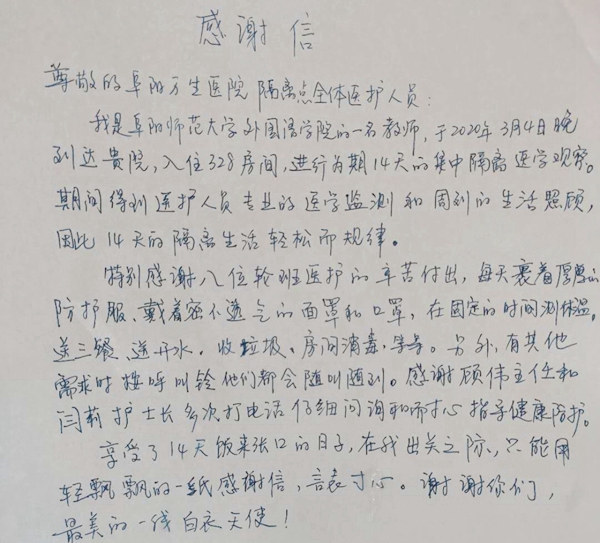 感谢信
尊敬的阜阳万生医院隔离点全体医护人员:
我是阜阳师范大学外国语学院的一名教师,于2020年3月4日晚
到达贵院,入住328房间,进行为期14天的集中隔离医学观察。
期间得到医护人员专业的医学监测和周到的生活照顾,
因此14天的隔离生活轻松而规律。
特别感谢八位轮班医护的辛苦付出,每天裹着厚厚的
防护服、戴着密不透气的面罩和口罩,在固定的时间测体温、
送三餐、送开水、收垃圾、房间消毒,等等。另外,有其他
需求时按呼叫铃他们都会随叫随到。感谢顾伟主任和
闫莉护士长多次打电话仔细问询和耐心指导健康防护。
享受了14天饭来张口的日子,在我出关之际,只能用
轻飘飘的一纸感谢信,言表寸心。谢谢你们,
最美的一线白衣天使!